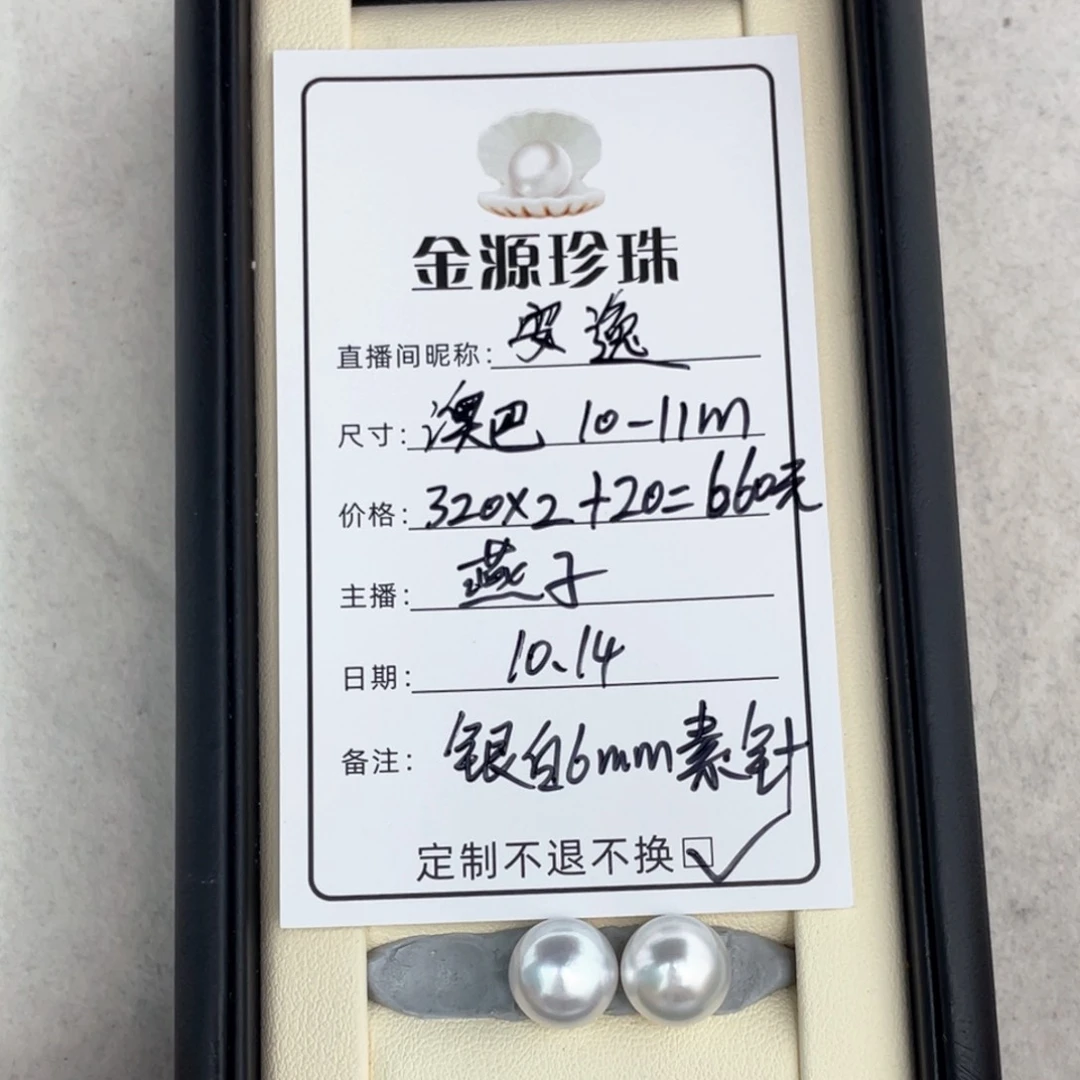 金源珍珠
直播间昵称: 安逸
尺寸: 澳巴 10-11m
价格: 320×2+20=660元
主播: 燕子
日期: 10.14
备注: 银白6mm素针
定制不退不换☑